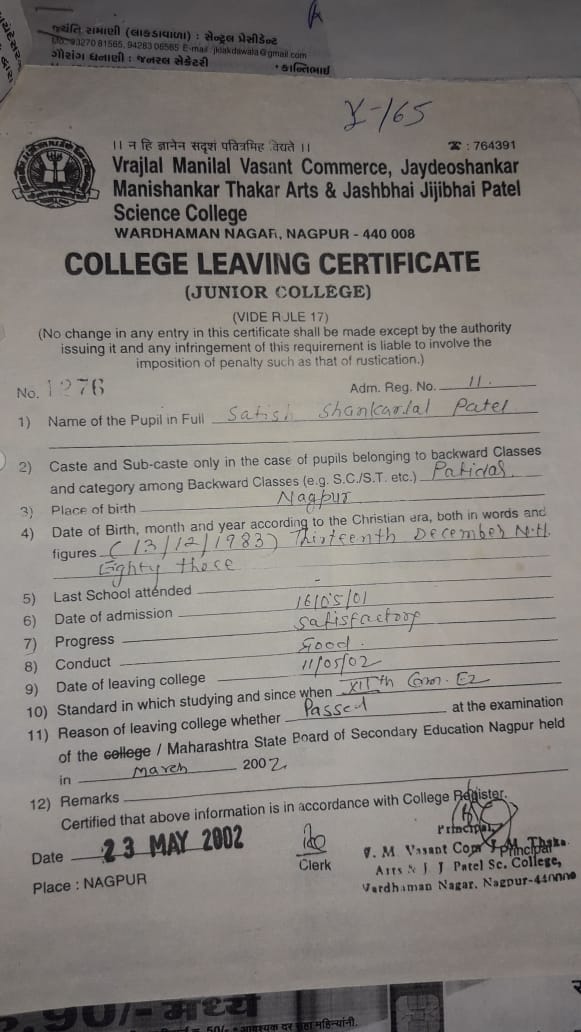 જ્યંતિ રામાણી (લાકડાવાળા) : સેન્ટ્રલ પ્રેસીડેન્ટ
Mo. 93270 81565, 94283 06565 E-mail : jklakdawala@gmail.com
ગૌરાંગ ધનાણી : જનરલ સેક્રેટરી • કાન્તિભાઈ
X-165
।। न हि ज्ञानेन सदृशं पवित्रमिह विद्यते ।। ☎ : 764391
Vrajlal Manilal Vasant Commerce, Jaydeoshankar
Manishankar Thakar Arts & Jashbhai Jijibhai Patel
Science College
WARDHAMAN NAGAR, NAGPUR - 440 008
COLLEGE LEAVING CERTIFICATE
(JUNIOR COLLEGE)
(VIDE RULE 17)
(No change in any entry in this certificate shall be made except by the authority
issuing it and any infringement of this requirement is liable to involve the
imposition of penalty such as that of rustication.)
No. 1276 Adm. Reg. No. 11.
1) Name of the Pupil in Full Satish Shankarlal Patel
2) Caste and Sub-caste only in the case of pupils belonging to backward Classes
and category among Backward Classes (e.g. S.C./S.T. etc.) Patidar
3) Place of birth Nagpur
4) Date of Birth, month and year according to the Christian era, both in words and
figures (13/12/1983) Thirteenth December N.H.
Eighty three
5) Last School attended -
6) Date of admission 16/05/01
7) Progress Satisfactory
8) Conduct Good.
9) Date of leaving college 11/05/02
10) Standard in which studying and since when XIIth Com. E2
11) Reason of leaving college whether Passed at the examination
of the college / Maharashtra State Board of Secondary Education Nagpur held
in March 2002
12) Remarks
Certified that above information is in accordance with College Register.
Date 23 MAY 2002 Clerk Principal
Principal
V. M. Vasant Com J. M. Thakar
Arts & J J Patel Sc. College,
Place : NAGPUR Wardhaman Nagar, Nagpur-440008
.90/- मध्ये